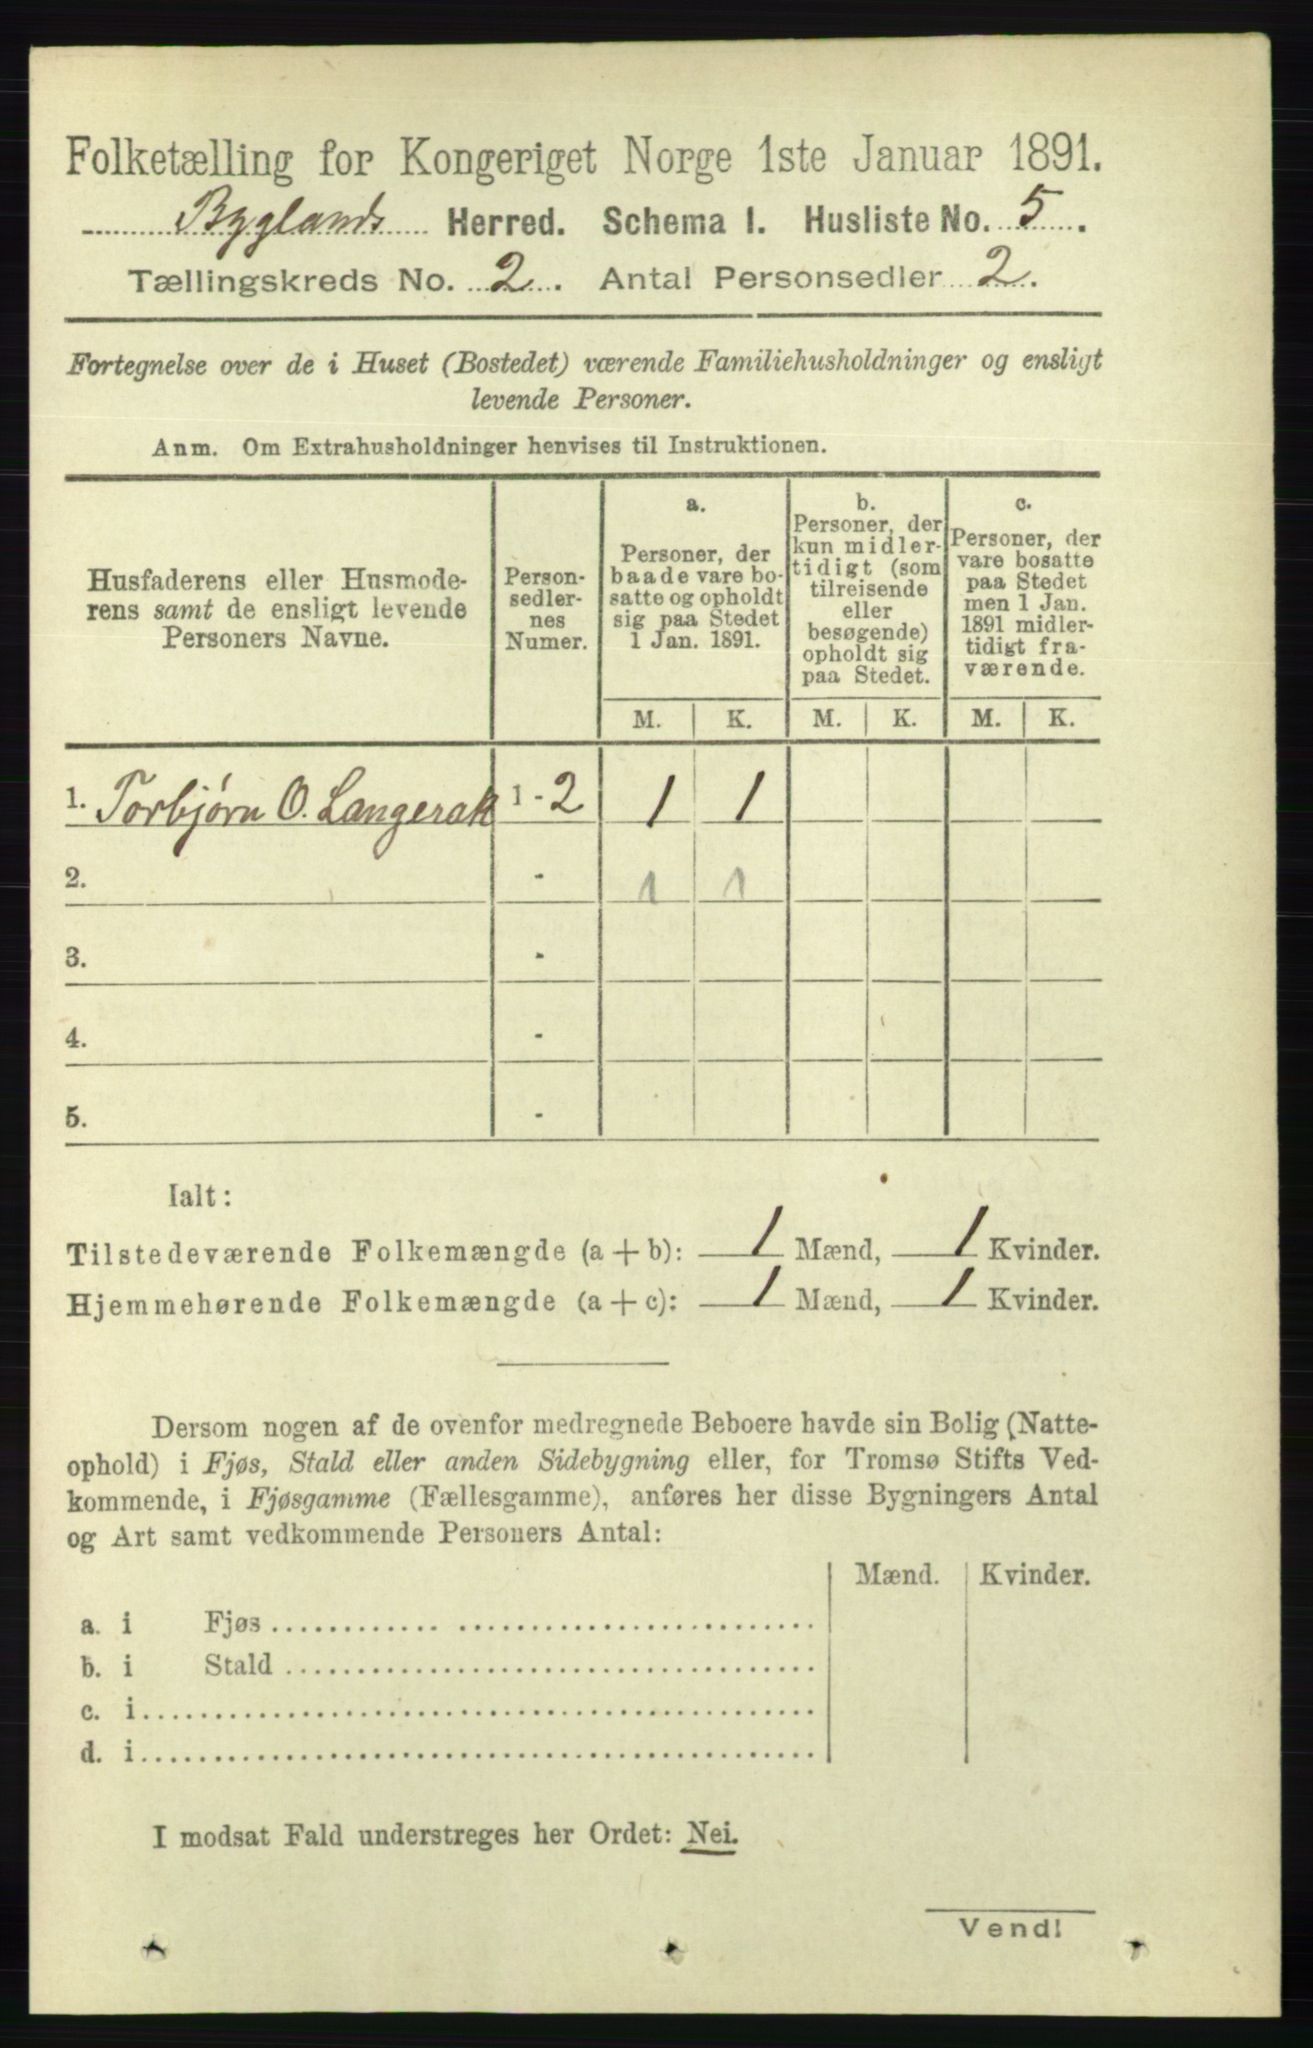 Folketælling for Kongeriget Norge 1ste Januar 1891.
Byglands Herred. Schema I. Husliste No. 5.
Tællingskreds No. 2. Antal Personsedler 2.
Fortegnelse over de i Huset (Bostedet) værende Familiehusholdninger og ensligt
levende Personer.
Anm. Om Extrahusholdninger henvises til Instruktionen.
Husfaderens eller Husmode-
rens samt de ensligt levende
Personers Navne.
Person-
sedler-
nes
Numer.
a.
Personer, der
baade vare bo-
satte og opholdt
sig paa Stedet
1 Jan. 1891.
b.
Personer, der
kun midler-
tidigt (som
tilreisende
eller
besøgende)
opholdt sig
paa Stedet.
c.
Personer, der
vare bosatte
paa Stedet
men 1 Jan.
1891 midler-
tidigt fra-
værende.
M. K. M. K. M. K.
1. Torbjørn O. Langerak 1 - 2 1 1
2. - 1 1
3. -
4. -
5. -
Ialt:
Tilstedeværende Folkemængde (a + b): 1 Mænd, 1 Kvinder.
Hjemmehørende Folkemængde (a + c): 1 Mænd, 1 Kvinder.
Dersom nogen af de ovenfor medregnede Beboere havde sin Bolig (Natte-
ophold) i Fjøs, Stald eller anden Sidebygning eller, for Tromsø Stifts Ved-
kommende, i Fjøsgamme (Fællesgamme), anføres her disse Bygningers Antal
og Art samt vedkommende Personers Antal:
Mænd. Kvinder.
a. i Fjøs
b. i Stald
c. i
d. i
I modsat Fald understreges her Ordet: Nei.
Vend!